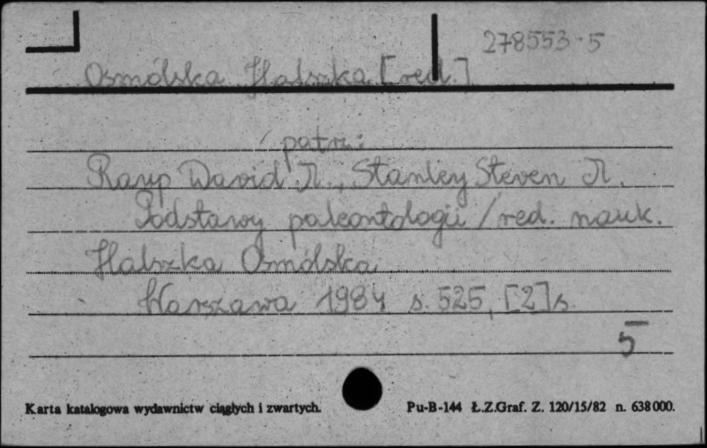 278553-5
Osmólska Halszka [red.]
patrz:
Raup David M., Stanley Steven M.
Podstawy paleontologii / red. nauk.
Halszka Osmólska
Warszawa 1984 s. 525, [2] s.
5
Karta katalogowa wydawnictw ciągłych i zwartych. Pu-B-144 Ł.Z.Graf. Z. 120/15/82 n. 638000.